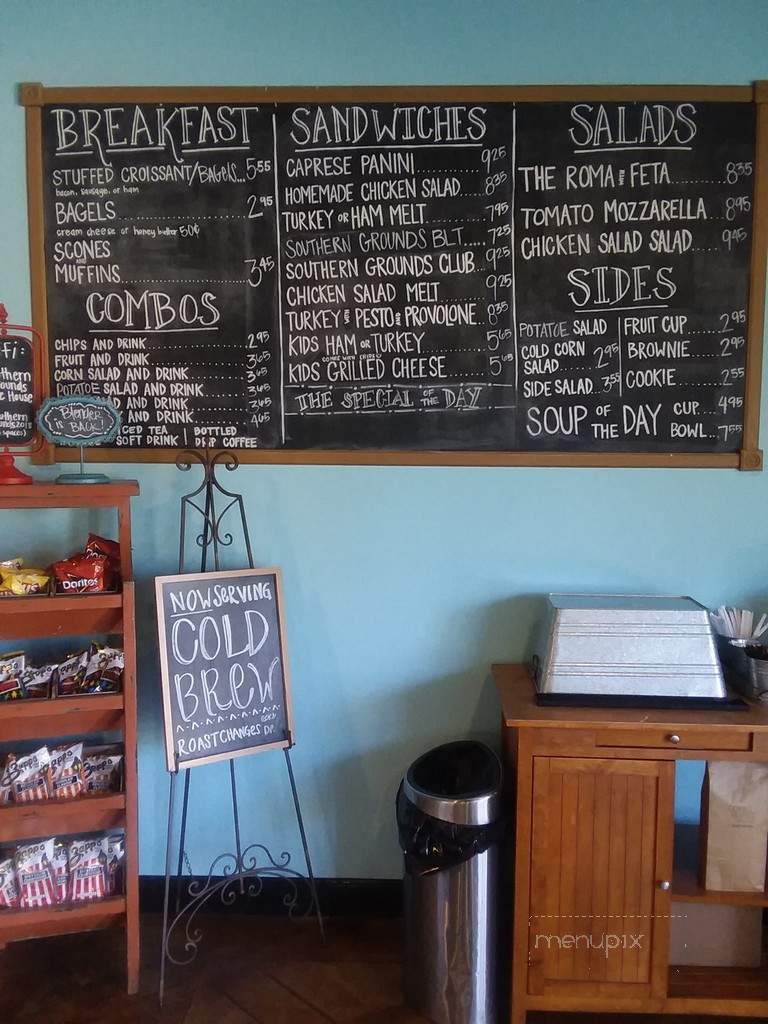 BREAKFAST
STUFFED CROISSANT/BAGELS...5.55
bacon, sausage, or ham
BAGELS...2.95
cream cheese or honey butter 50¢
SCONES
AND
MUFFINS...3.45
COMBOS
CHIPS AND DRINK...2.95
FRUIT AND DRINK...3.65
CORN SALAD AND DRINK...3.45
POTATOE SALAD AND DRINK...3.45
AND DRINK...3.45
AND DRINK...4.65
ICED TEA | BOTTLED
SOFT DRINK | DRIP COFFEE
SANDWICHES
CAPRESE PANINI 9.25
HOMEMADE CHICKEN SALAD...8.35
TURKEY OR HAM MELT...7.95
SOUTHERN GROUNDS BLT...7.25
SOUTHERN GROUNDS CLUB...9.25
CHICKEN SALAD MELT 9.25
TURKEY WITH PESTO AND PROVOLONE...8.35
KIDS HAM OR TURKEY 5.65
COMES WITH CHIPS
KIDS GRILLED CHEESE...5.65
THE SPECIAL OF THE DAY
SALADS
THE ROMA WITH FETA...8.35
TOMATO MOZZARELLA...8.95
CHICKEN SALAD SALAD...9.45
SIDES
POTATOE SALAD
COLD CORN
SALAD...2.95
SIDE SALAD...3.55
FRUIT CUP...2.95
BROWNIE...2.95
COOKIE...2.55
SOUP OF THE DAY
CUP...4.95
BOWL...7.55
Blender
is BACK!
NOW SERVING
COLD
BREW
ROAST CHANGES
Doritos
Zapp's
Zapp's
menupix